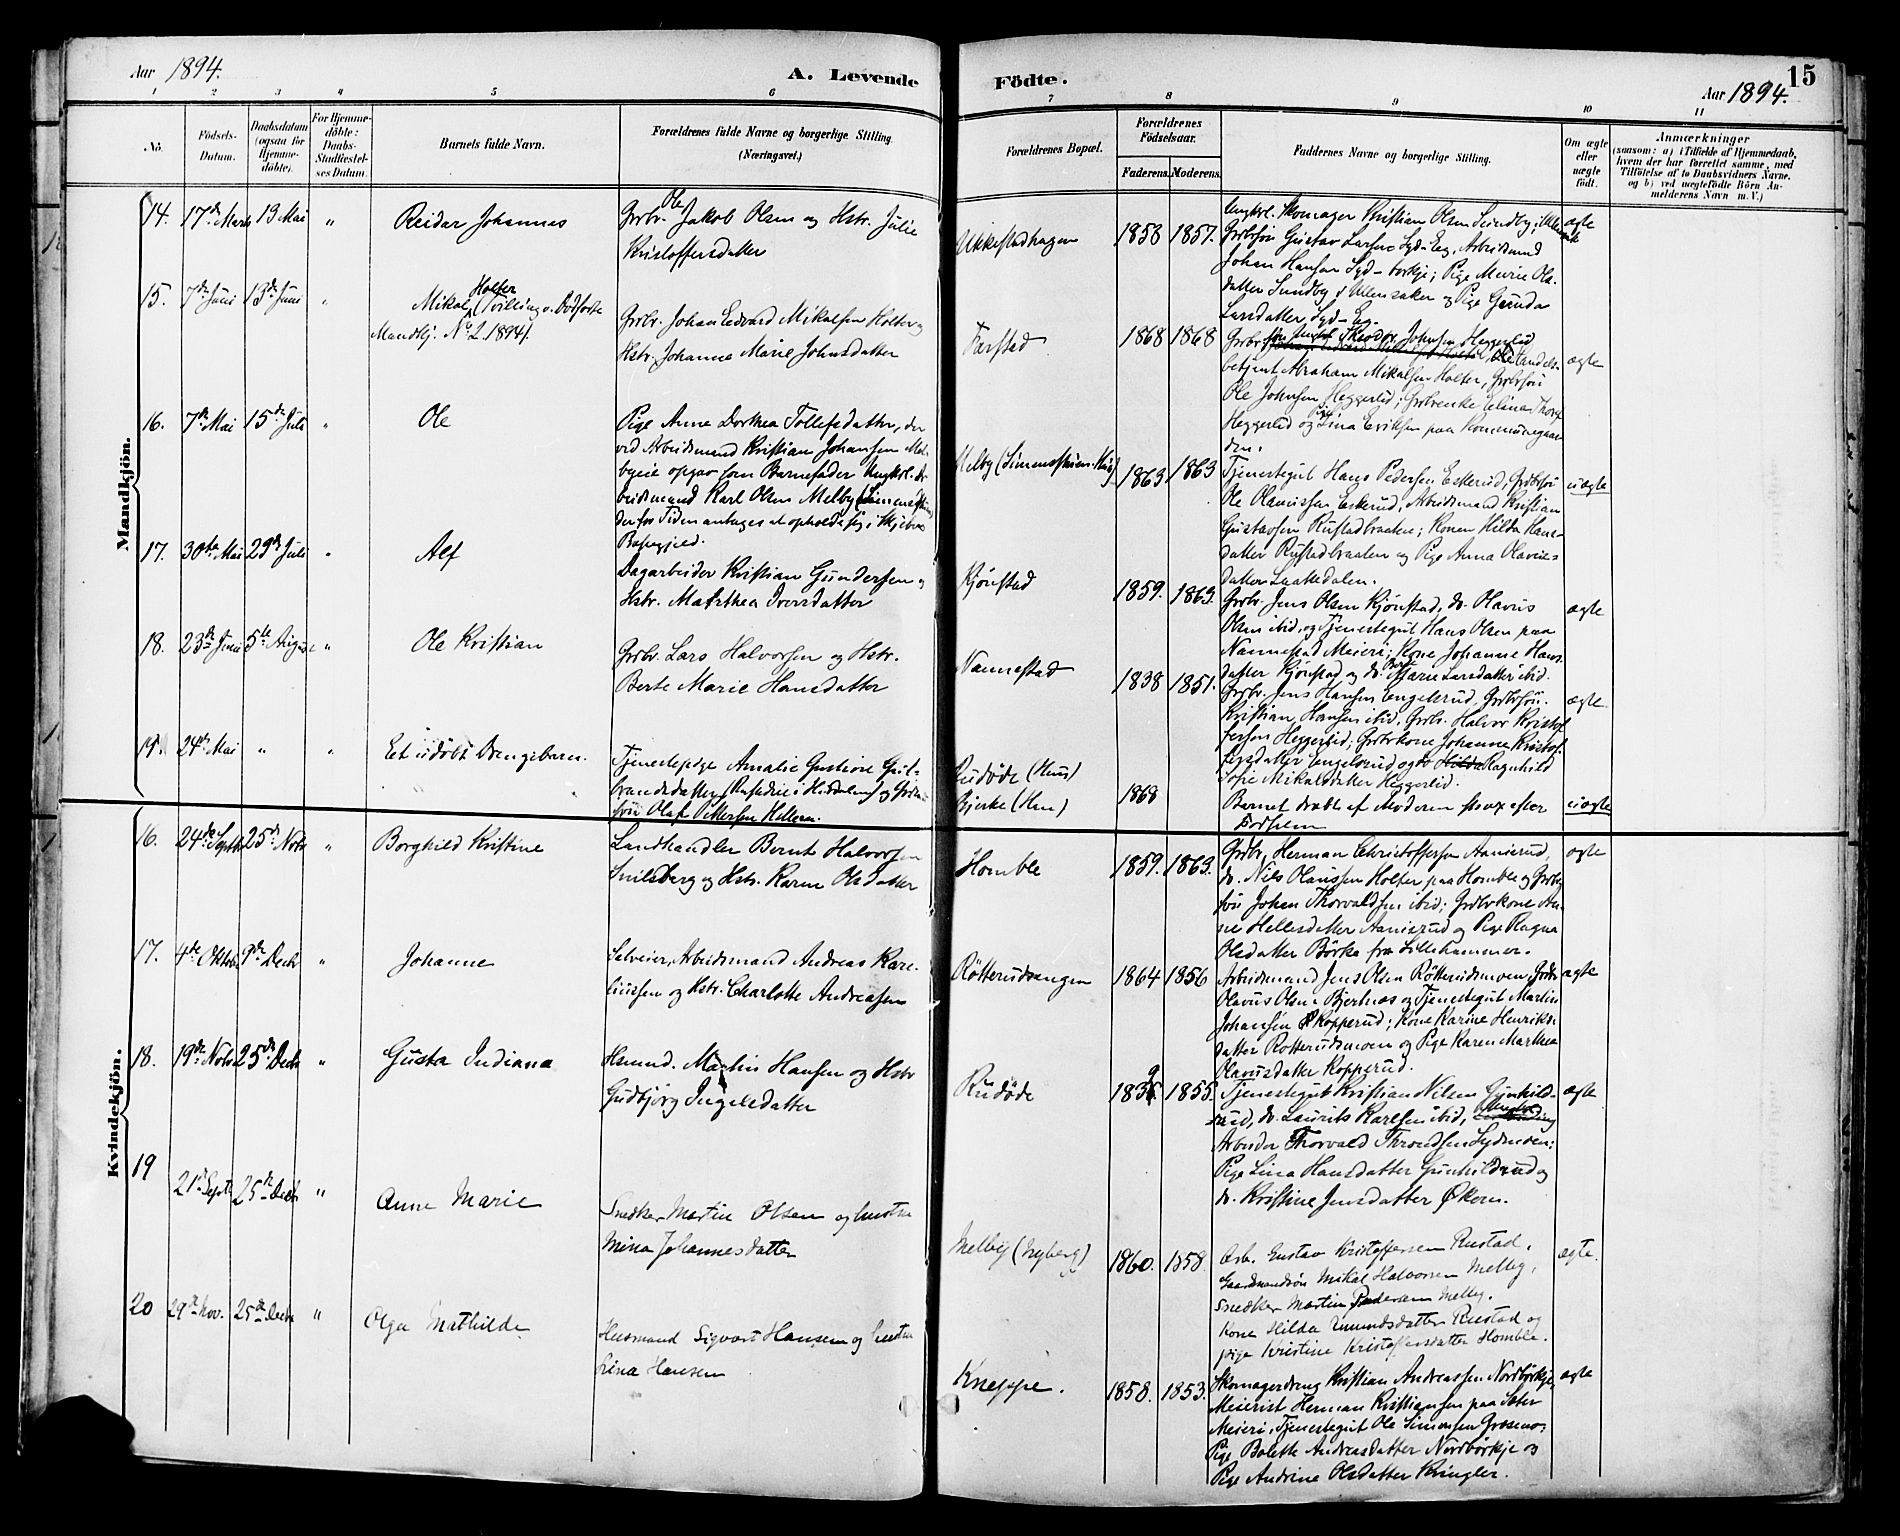 Aar 1894.
A. Levende
Födte.
15
Aar 1894.
1 2 3 4 5 6 7 8 9 10 11
No.
Födsels-
Datum.
Daabsdatum
(ogsaa for
Hjemme-
döbte).
For Hjemme-
döbte:
Daabs-
Stadfæstel-
ses Datum.
Barnets fulde Navn.
Forældrenes fulde Navne og borgerlige Stilling
(Næringsvei.)
Forældrenes Bopæl.
Forældrenes
Födselsaar.
Faderens. Moderens.
Faddernes Navne og borgerlige Stilling.
Om ægte
eller
uægte
födt.
Anmærkninger
(saasom: a) i Tilfælde af Hjemmedaab,
hvem der har forrettet samme, med
Tilföielse af to Daabsvidners Navne,
og b) ved uægtefödte Börn An-
melderens Navn m. V.)
Mandkjön.
14. 17de Marts 13 Mai " Reidar Johannes
Grbr. Ole Jakob Olsen og Hstr. Julie
Kristoffersdatter
Ukkestadhagen 1858 1857.
Ungkrl. Skomager Kristian Olsen Sundby i Ullensak
Grbrsön Gustav Larsen Syd-Eg, Arbeidsmand
Johan Hansen Syd-borkje; Pige Marie Ols-
datter Sundby i Ullensaker og Pige Gunda
Larsdatter Syd-Eg.
ægte
15. 7de Juni 13de Juni " Mikal Holter (Tvilling v. Dödfödte
Mandkj. No 2 1894).
Grbr. Johan Edvard Mikalsen Holter og
Hstr. Johanne Marie Johnsdatter
Farstad 1868 1868
Grbrsön Theodor Johnsen Heggerlid
Handels-
betjent Abraham Mikalsen Holter, Grbrsön
Ole Johnsen Heggerlid; Grbrenke Elina Thorp
Heggerlid og Pige Lina Eriksen paa Kommunegaar-
den.
ægte
16. 7de Mai 15de Juli " Ole
Pige Anne Dorthea Tollefsdatter, der
ved Arbeidsmand Kristian Johansen Mel-
byeie opgav som Barnefader Ungkrl. Ar-
beidsmand Karl Olsen Melby (Simenstuen)
der for Tiden antages at opholde sig i Skjeberg
Præstegjeld.
Melby (Simensstuen Hus) 1863 1863
Tjenestegut Hans Pedersen Eskerud, Grbrsön
Ole Olavussen Eskerud, Arbeidsmand Kristian
Gustavsen Rustadbraaten; Konen Hilda Hans-
datter Rustadbraaten og Pige Anna Olavus-
datter Laakedalen.
uægte
17. 30te Mai 29de Juli " Alf
Dagarbeider Kristian Gundersen og
Hstr. Marthea Iversdatter
Kjönstad 1859. 1863.
Grbr. Jens Olsen Kjönstad, do. Olavus
Olsen ibid, og Tjenestegut Hans Olsen paa
Nannestad Meieri; Kone Johanne Hans-
datter Kjönstad og do. Berte Marie Larsdatter ibid.
ægte
18. 23de Juni 5te August " Ole Kristian
Grbr. Lars Halvorsen og Hstr.
Berte Marie Hansdatter
Nannestad 1838 1851.
Grbr. Jens Hansen Engelsrud, Grbrsön
Kristian Hansen ibid, Grbr. Halvor Kristof-
fersen Heggerlid; Grbrkone Johanne Kristof-
fersdatter Engelsrud og do Hilda Ragnhild
Sofie Mikalsdatter Heggerlid.
ægte
19. 24de Mai " " Eet udöbt Drengebarn.
Tjenestepige Amalie Gustava Gul-
brandsdatter og Grbr-
sön Olaf Pettersen Helleren.
Rudöde (Hus)
Bjerke (Hun) 1868
Barnet dræbt af Moderen strax efter
Fødselen
uægte
Kvindekjön.
16. 24de Septbr 25de Novbr " Borghild Kristine
Landhandler Bernt Halvorsen
Smilsberg og Hstr. Karen Olsdatter
Homble 1859. 1863.
Grbr. Herman Christoffersen Aamerud,
do. Nils Olaussen Holter paa Homble og Grbr-
sön Johan Thorvaldsen ibid; Grbrkone An-
ne Hellesdatter Aamerud og Pige Ragna
Olsdatter Börke fra Lillehammer.
ægte
17. 4de Oktbr 9de Decbr " Johanne
Selveier, Arbeidsmand Andreas Kare-
liussen og Hstr. Charlotte Andreassen
Rötterudsengen 1864 1856
Arbeidsmand Jens Olsen Rötterudsmoen, Grbr
Olavus Olsen Bjertnæs og Tjenestegut Martin
Johansen Kopperud; Kone Karine Henriks-
datter Rotterudsmoen og Pige Karen Marthea
Olavusdatter Kopperud.
ægte
18. 19de Novbr 25de Decbr " Gusta Indiana
Husmd. Martin Hansen og Hstr
Gudbjörg Ingelsdatter
Rudöde 1839 1855.
Tjenestegut Kristian Nilsen Gunhild-
rud, do. Laurits Karlsen ibid,
Arbeider Thorvald Throndsen Sydmoen;
Pige Lina Hansdatter Gunhildrud og
do. Kristine Jensdatter Økern.
ægte
19 21de Septbr 25de Decbr " Anne Marie
Snedker Martin Olsen og hustru
Mina Johannesdatter
Melby (Nyberg) 1860. 1858.
Arb. Gustav Kristoffersen Rustad,
Gaardmandssön Mikal Halvorsen Melby,
Snedker Martin Pedersen Melby.
Kone Hilda Amundsdatter Rustad og
pige Kristine Kristoffersdatter Homble.
ægte.
20 29de Nov. 25de Decbr " Olga Mathilde
Husmand Sigvart Hansen og hustru
Lina Hansen
Kneppe. 1858. 1853.
Skomagerdreng Kristian Andreassen Nordbörkje,
Meierist Herman Kristiansen paa Sæter
Meieri, Tjenestegut Ole Simensen Grosemo;
Pige Bolette Andreasdatter Nordbörkje og
Pige Andrine Olsdatter Kringler.
ægte